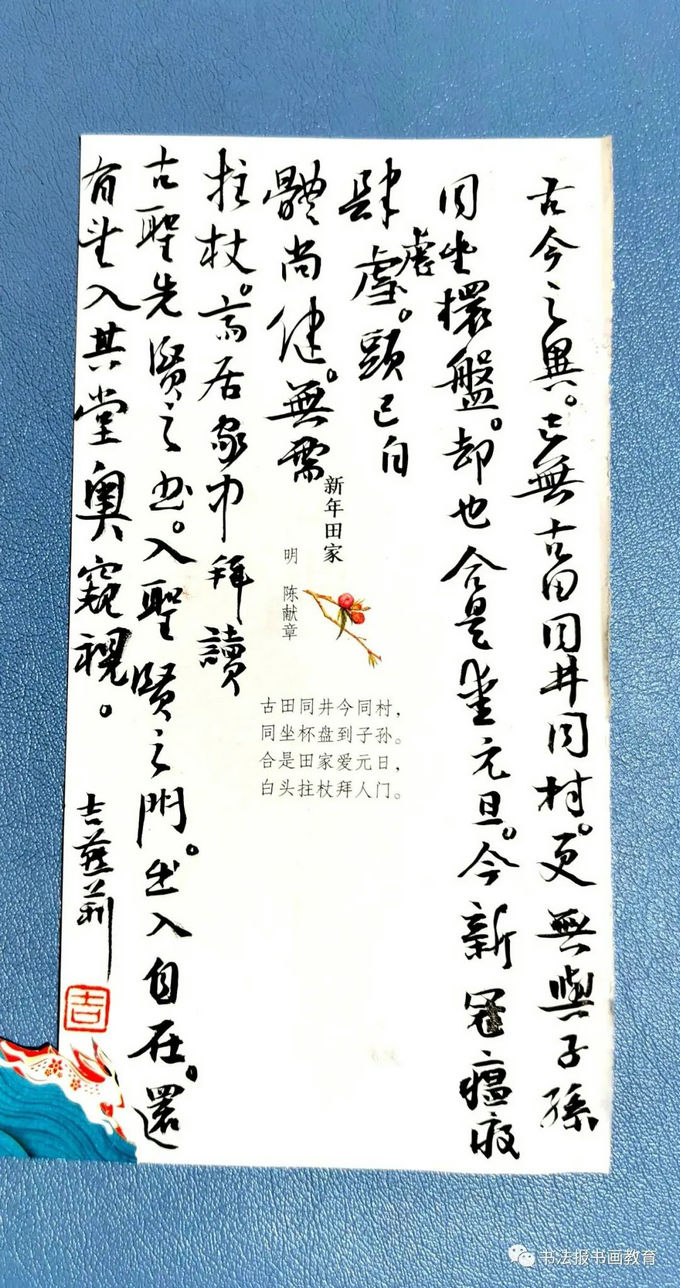 古今之異。已無古田同井同村。更無與子孫
同坐盤。却也合是愛元旦。今新冠瘟疫
肆虐虐。頭已白
體尚健。無需
拄杖。居家中拜讀
古聖先賢之書。入聖賢之門。出入自在。還
有望入其堂奧窺視。
吉莉
吉
新年田家
明 陈献章
古田同井今同村，
同坐杯盘到子孙。
合是田家爱元日，
白头拄杖拜人门。
书法报书画教育